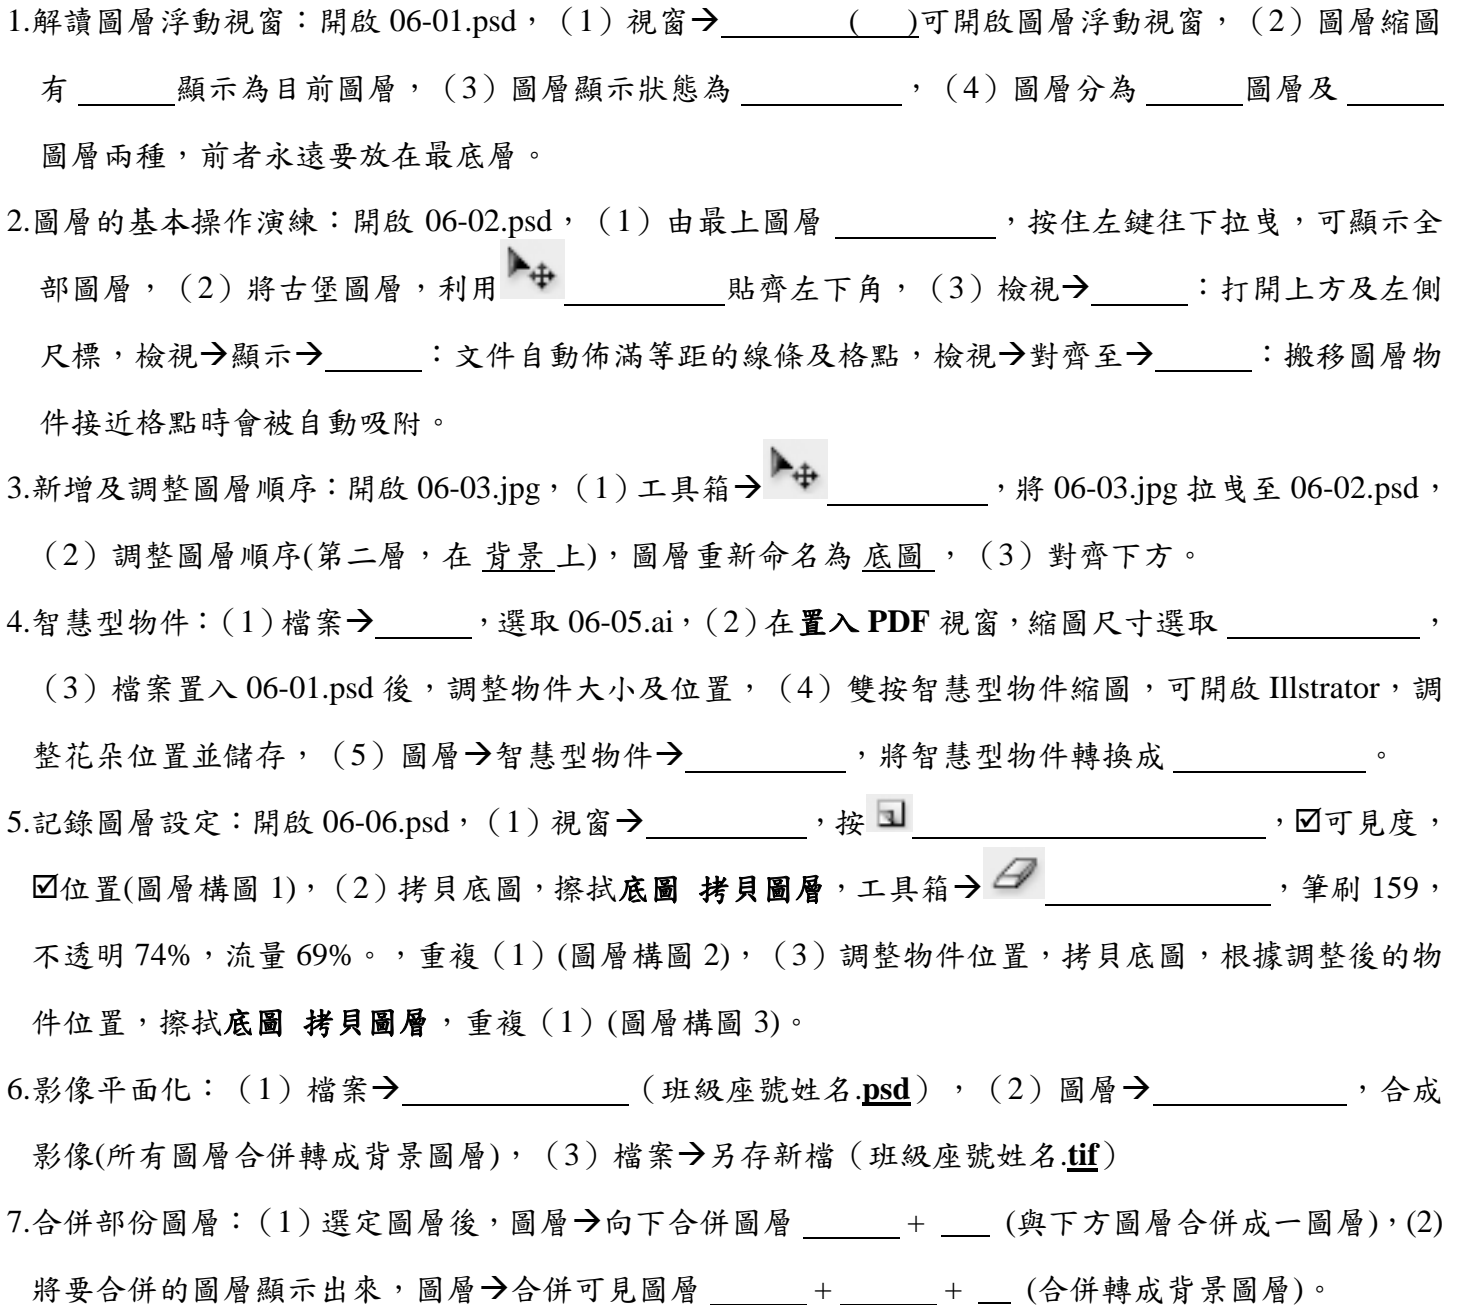 1.解讀圖層浮動視窗：開啟 06-01.psd，（1）視窗→________(__)可開啟圖層浮動視窗，（2）圖層縮圖
有 ______顯示為目前圖層，（3）圖層顯示狀態為 __________，（4）圖層分為 ______圖層及 ______
圖層兩種，前者永遠要放在最底層。
2.圖層的基本操作演練：開啟 06-02.psd，（1）由最上圖層 __________，按住左鍵往下拉曵，可顯示全
部圖層，（2）將古堡圖層，利用 __________貼齊左下角，（3）檢視→______：打開上方及左側
尺標，檢視→顯示→______：文件自動佈滿等距的線條及格點，檢視→對齊至→______：搬移圖層物
件接近格點時會被自動吸附。
3.新增及調整圖層順序：開啟 06-03.jpg，（1）工具箱→ __________，將 06-03.jpg 拉曵至 06-02.psd，
（2）調整圖層順序(第二層，在 背景 上)，圖層重新命名為 底圖 ，（3）對齊下方。
4.智慧型物件：（1）檔案→______，選取 06-05.ai，（2）在置入 PDF 視窗，縮圖尺寸選取 ____________，
（3）檔案置入 06-01.psd 後，調整物件大小及位置，（4）雙按智慧型物件縮圖，可開啟 Illstrator，調
整花朵位置並儲存，（5）圖層→智慧型物件→__________，將智慧型物件轉換成 ____________。
5.記錄圖層設定：開啟 06-06.psd，（1）視窗→__________，按 ______________________，☑可見度，
☑位置(圖層構圖 1)，（2）拷貝底圖，擦拭底圖 拷貝圖層，工具箱→ ______________，筆刷 159，
不透明 74%，流量 69%。，重複（1）(圖層構圖 2)，（3）調整物件位置，拷貝底圖，根據調整後的物
件位置，擦拭底圖 拷貝圖層，重複（1）(圖層構圖 3)。
6.影像平面化：（1）檔案→______________（班級座號姓名.psd），（2）圖層→____________，合成
影像(所有圖層合併轉成背景圖層)，（3）檔案→另存新檔（班級座號姓名.tif）
7.合併部份圖層：（1）選定圖層後，圖層→向下合併圖層 ______ + ___ (與下方圖層合併成一圖層)，(2)
將要合併的圖層顯示出來，圖層→合併可見圖層 ______ + ______ + __ (合併轉成背景圖層)。